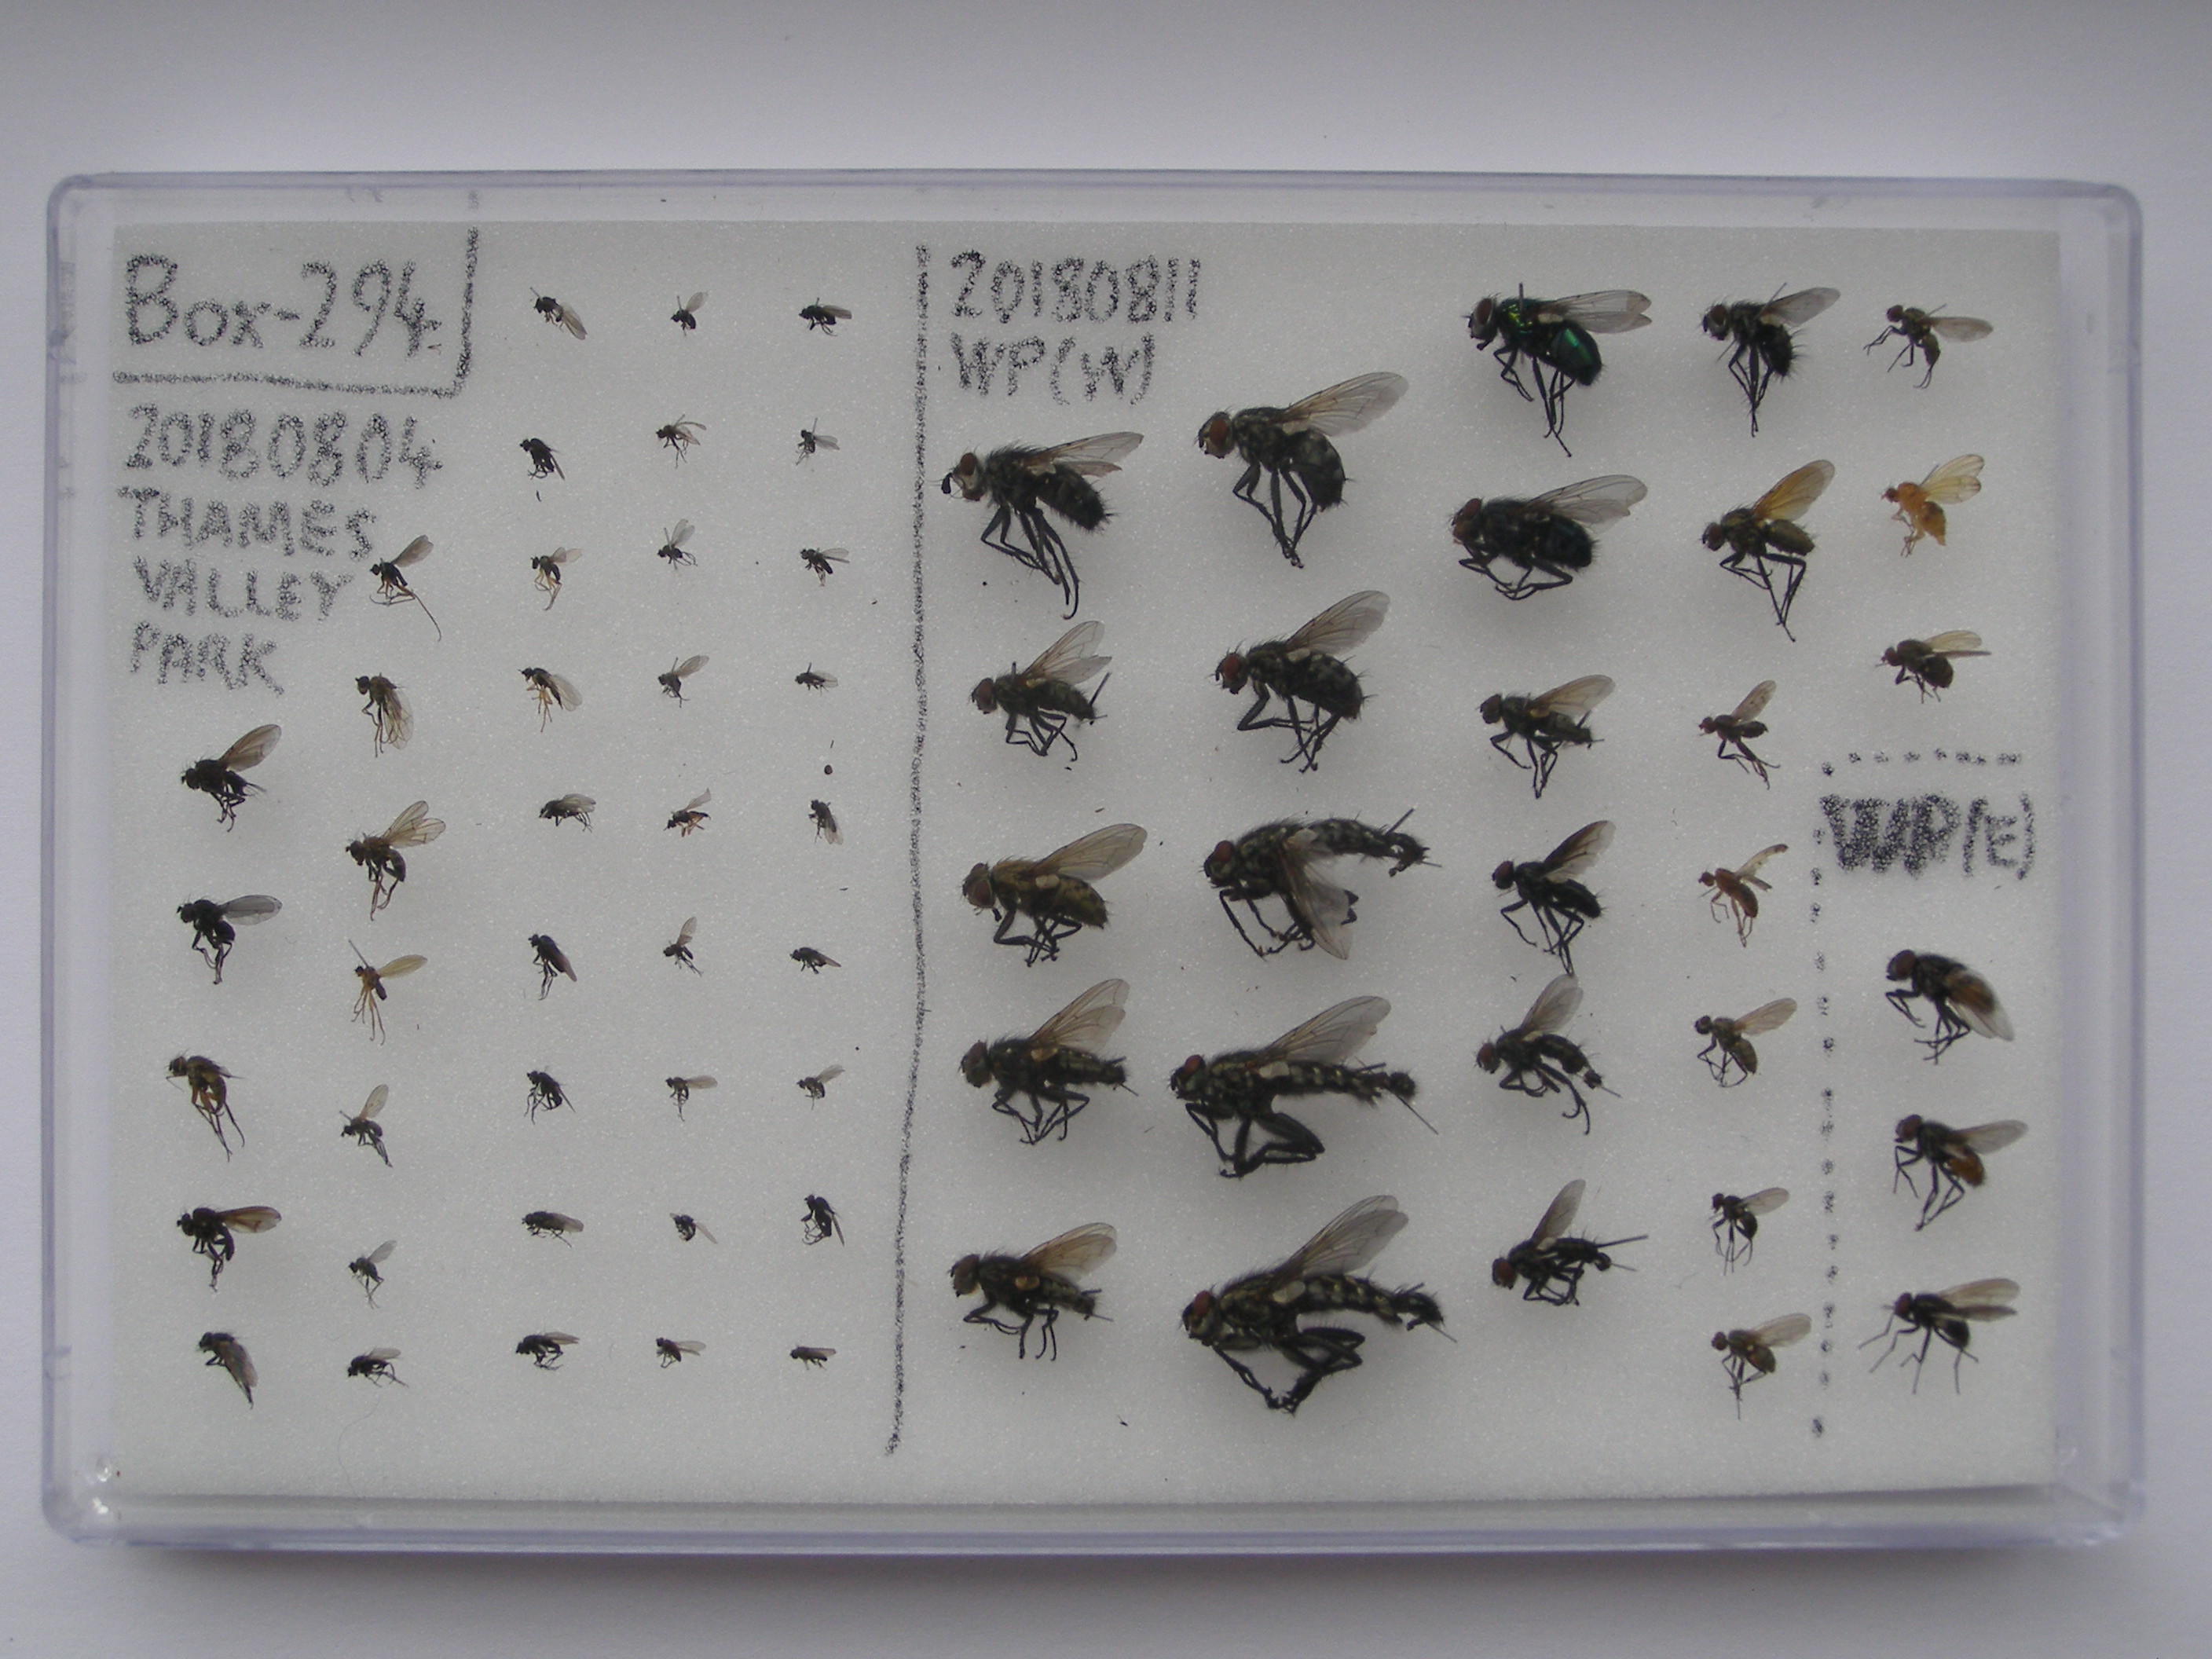 Box-294
20180804
THAMES
VALLEY
PARK
20180811
WP(W)
WP(E)